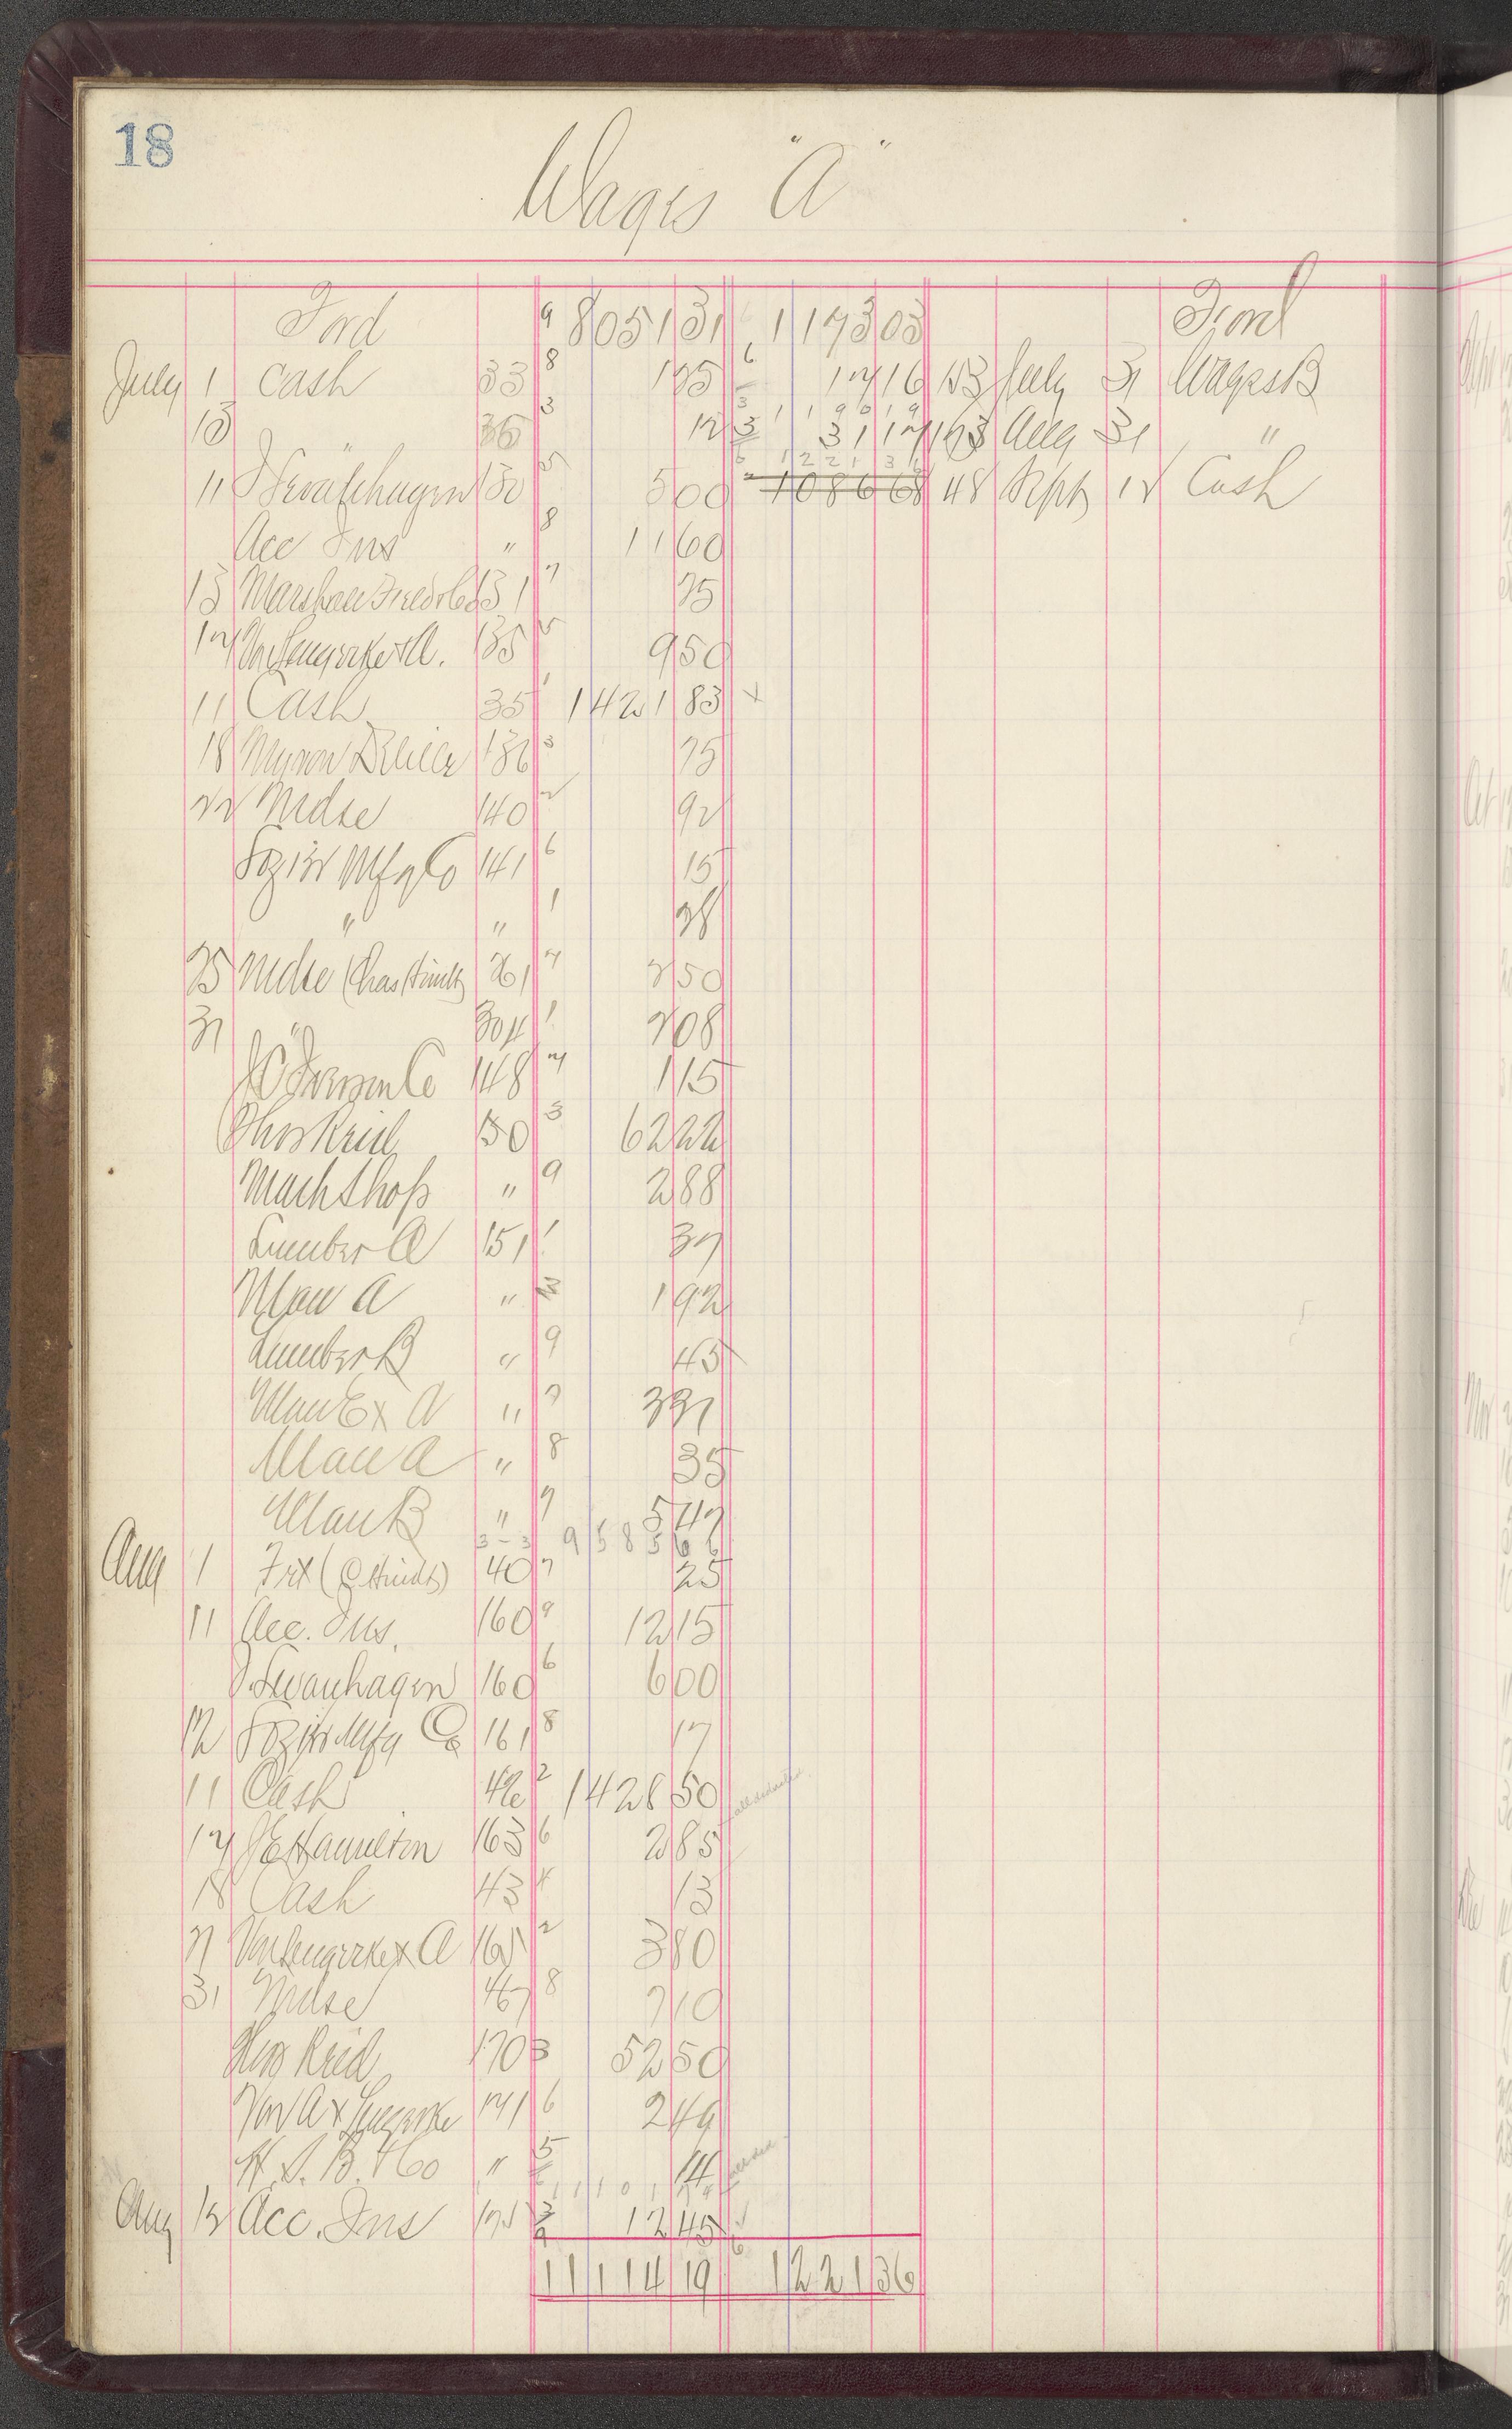 18
Wages "A"
Ford 9 8051 31 1173 03 Ford
July 1 Cash 33 8 1 25 6 17 16 153 July 31 Wages B
13 " 36 3 12 3 31 17 173 Aug 31 "
11 J Swanhagen 130 5 5 00 1086 68 48 Sept 12 Cash
Acc Ins " 8 11 60
13 Marshall Field & Co 131 7 25
17 Von Lengerke & A. 135 5 9 50
11 Cash 35 1 1421 83 x
18 Myron 136 3 75
22 Mdse 140 2 92
Mfg Co 141 6 15
" " 1 28
25 Mdse (Chas Hinds) 261 7 2 50
31 " 304 1 2 08
Iverson Co 148 7 1 15
Thos Reid 150 3 62 22
Mach Shop " 9 2 88
Lumber A 151 1 37
Man A " 3 1 92
Lumber B " 9 45
Man Ex A " 7 3 31
Man A " 8 35
Man B " 7 5 47
3 - 3 9585 66
Aug 1 Frt (C Hinds) 40 7 25
11 Acc. Ins. 160 9 12 15
J. Swanhagen 160 6 6 00
12 Mfg Co 161 8 17
11 Cash 42 2 1428 50
17 J E Hamilton 163 6 2 85
18 Cash 43 4 13
21 Von Lengerke & A 165 2 3 80
31 Mdse 467 8 7 10
Thos Reid 170 3 52 50
Von A & Lengerke 171 6 2 49
H. S. B. & Co " 5 14
Aug 12 Acc. Ins 175 3 12 45
11114 19 1221 36